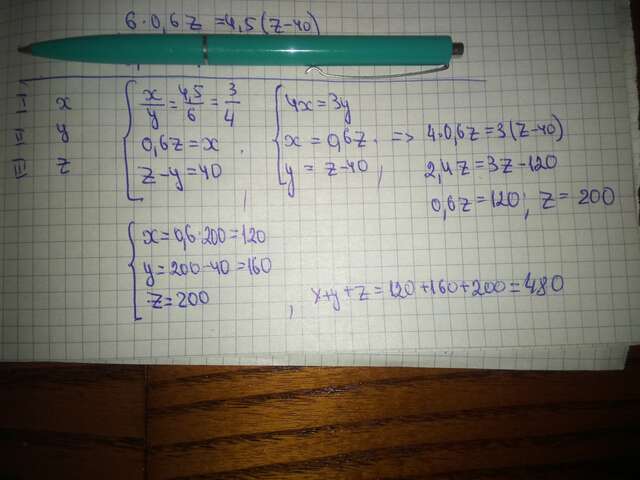 6·0,6z = 4,5(z-40)
I x
II y
III z
x/y = 4,5/6 = 3/4
0,6z = x
z-y = 40
4x = 3y
x = 0,6z
y = z-40
=> 4·0,6z = 3(z-40)
2,4z = 3z-120
0,6z = 120, z = 200
x = 0,6·200 = 120
y = 200-40 = 160
z = 200
x+y+z = 120+160+200 = 480